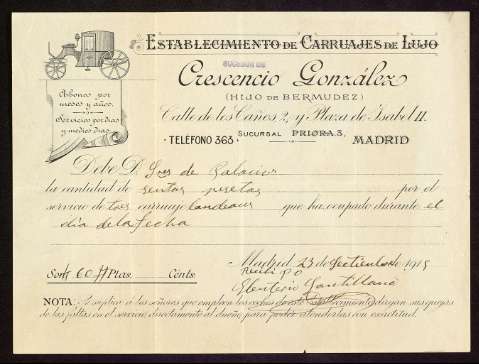 ESTABLECIMIENTO DE CARRUAJES DE LUJO
SUCESOR DE
Crescencio González
(HIJO DE BERMUDEZ)
Abonos por
meses y años.
Servicios por días
y medios días.
Calle de los Caños 2, y Plaza de Isabel II.
TELÉFONO 363 SUCURSAL PRIORA 3, MADRID
Debe D. Sres de Palacios
la cantidad de sentas pesetas por el
servicio de tres carruaje landeaus que ha ocupado durante el
día de la fecha
Madrid, 23 de Setiembre 1915
Recibi P O
Son 60 Ptas. Cents.
NOTA: Se suplica á los señores que empleen los coches de este Establecimiento dirijan sus quejas
de las faltas en el servicio directamente al dueño, para poder atenderlas con exactitud.